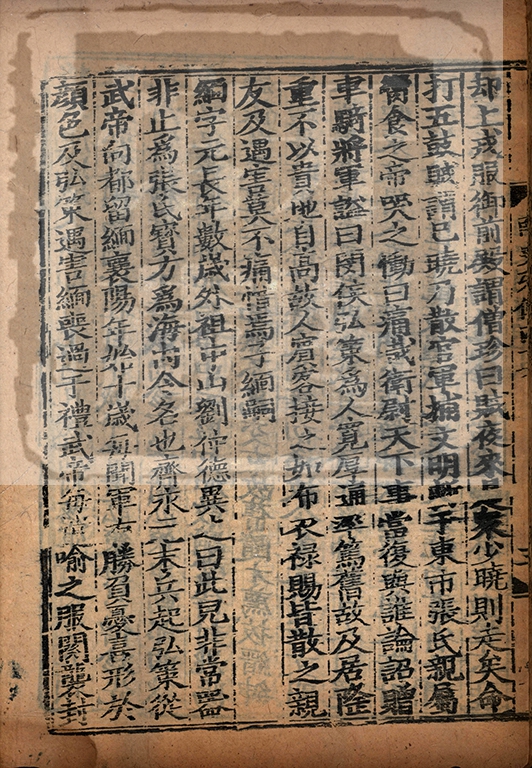 却上戎服御前殿謂僧珍曰賊夜來是衆少曉則走矣命
打五鼓賊謂已曉乃散官軍捕文明斬于東市張氏親屬
臠食之帝哭之慟曰痛哉衛尉天下事當復與誰論詔贈
車騎將軍諡曰閔侯弘策為人寬厚通率篤舊故及居隆
重不以貴地自高故人賓客接之如布衣祿賜皆散之親
友及遇害莫不痛惜焉子緬嗣
緬字元長年數歲外祖中山劉仲德異之曰此兒非常器
非止為張氏寳方為海內令名也齊永元末兵起弘策從
武帝向都留緬襄陽年始十歲每聞軍有勝負憂喜形於
顏色及弘策遇害緬喪過于禮武帝每遣喻之服闋襲封